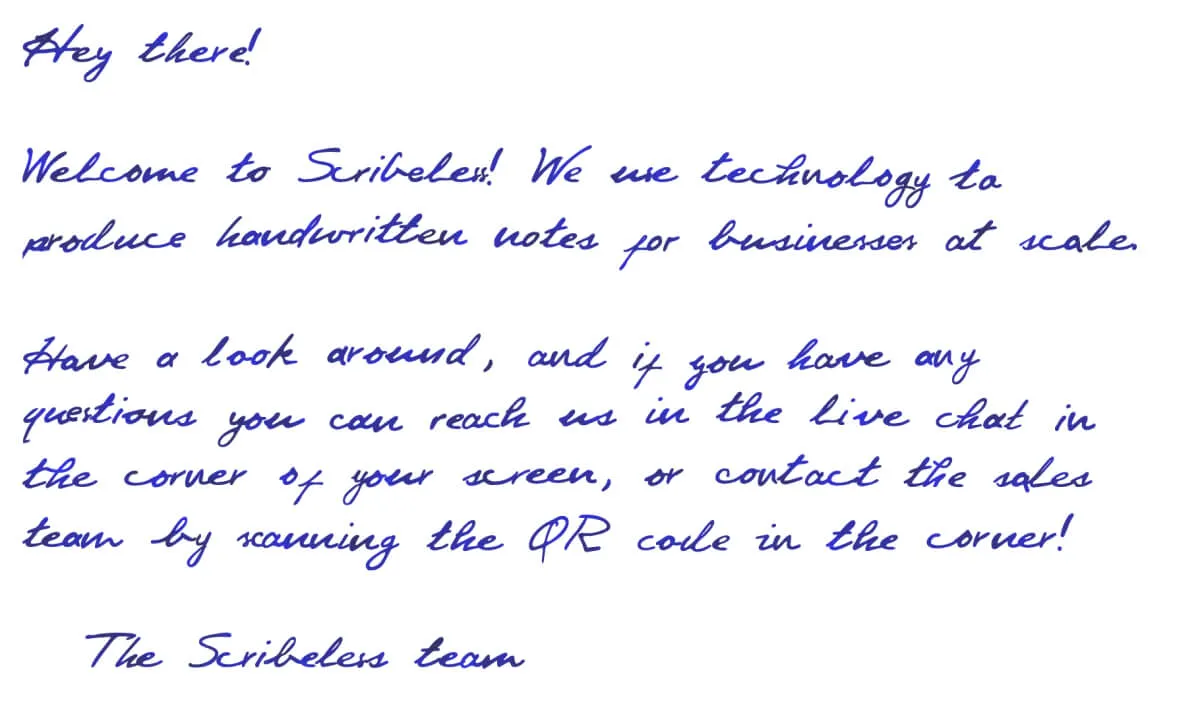 Hey there!
Welcome to Scribeless! We use technology to
produce handwritten notes for businesses at scale.
Have a look around, and if you have any
questions you can reach us in the live chat in
the corner of your screen, or contact the sales
team by scanning the QR code in the corner!
The Scribeless team